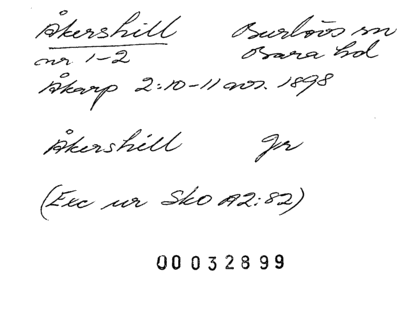 Åkershill Burlövs sn
nr 1-2 Bara hd
Åkarp 2:10-11 avs. 1898
Åkershill gr
(Exc ur SkO A2:82)
00032899